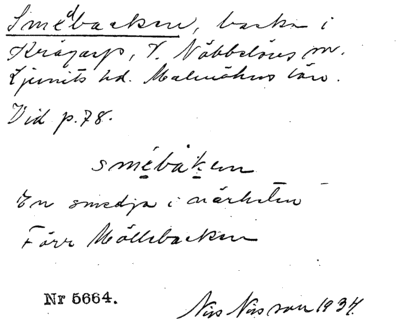 Smedbacken, backe i
Krågarp, V. Nöbbelövs sn.
Ljunits hd. Malmöhus län.
Vid p. 78.
smèbáken
En smedja i närheten
Förr Möllebacken
Nr 5664.
Nils Nilsson 1934.